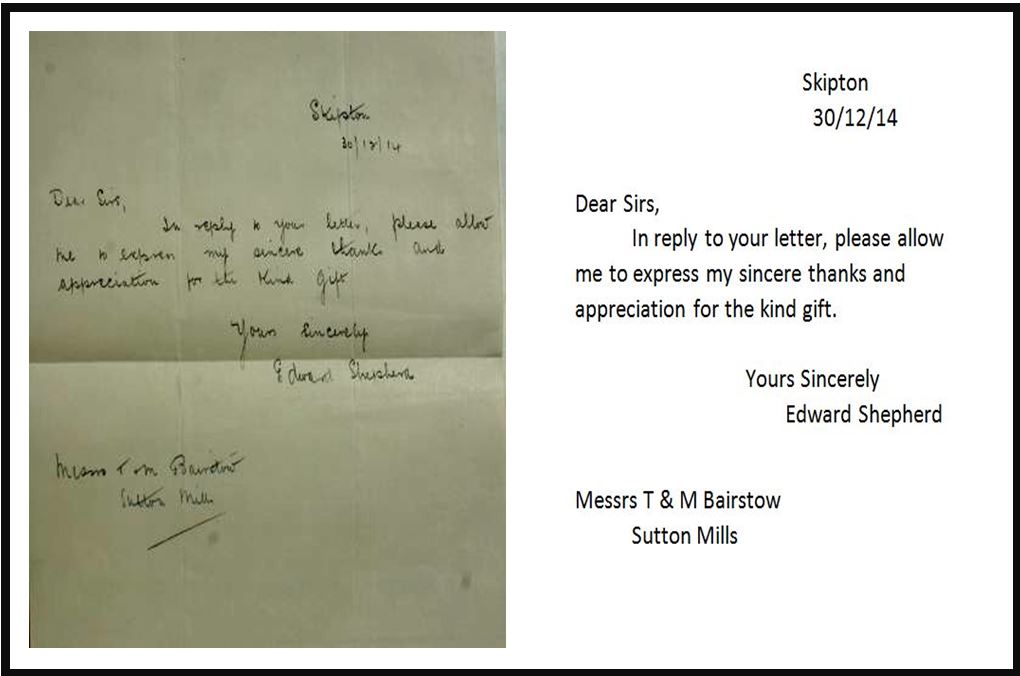 Skipton
30/12/14
Dear Sirs,
In reply to your letter, please allow
me to express my sincere thanks and
appreciation for the kind gift
Yours Sincerely
Edward Shepherd
Messrs T & M Bairstow
Sutton Mills
Skipton
30/12/14
Dear Sirs,
In reply to your letter, please allow
me to express my sincere thanks and
appreciation for the kind gift.
Yours Sincerely
Edward Shepherd
Messrs T & M Bairstow
Sutton Mills